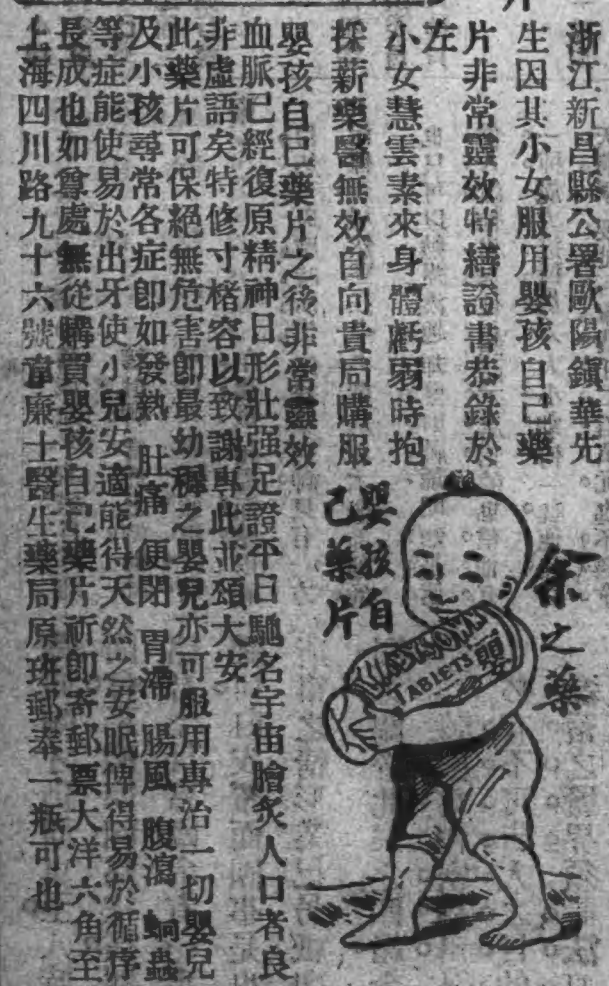 浙江新昌縣公署歐陽鎭華先
生因其小女服用嬰孩自己藥
片非常靈效特繕證書恭錄於
左
小女慧雲素來身體虧弱時抱
採薪藥醫無效自向貴局購服
嬰孩自己藥片之後非常靈效
血脈已經復原精神日形壯强足證平日馳名宇宙膾炙人口者良
非虛語矣特修寸楮容以致謝專此並頌大安
此藥片可保絕無危害卽最幼穉之嬰兒亦可服用專治一切嬰兒
及小孩尋常各症卽如發熱 肚痛 便閉 胃滯 腸風 腹瀉 蛔蟲
等症能使易於出牙使小兒安適能得天然之安眠俾得易於循序
長成也如尊處無從購買嬰孩自己藥片祈卽寄郵票大洋六角至
上海四川路九十六號韋廉士醫生藥局原班郵奉一瓶可也
余之藥
嬰孩自
己藥片
BABY'S OWN
TABLETS 嬰